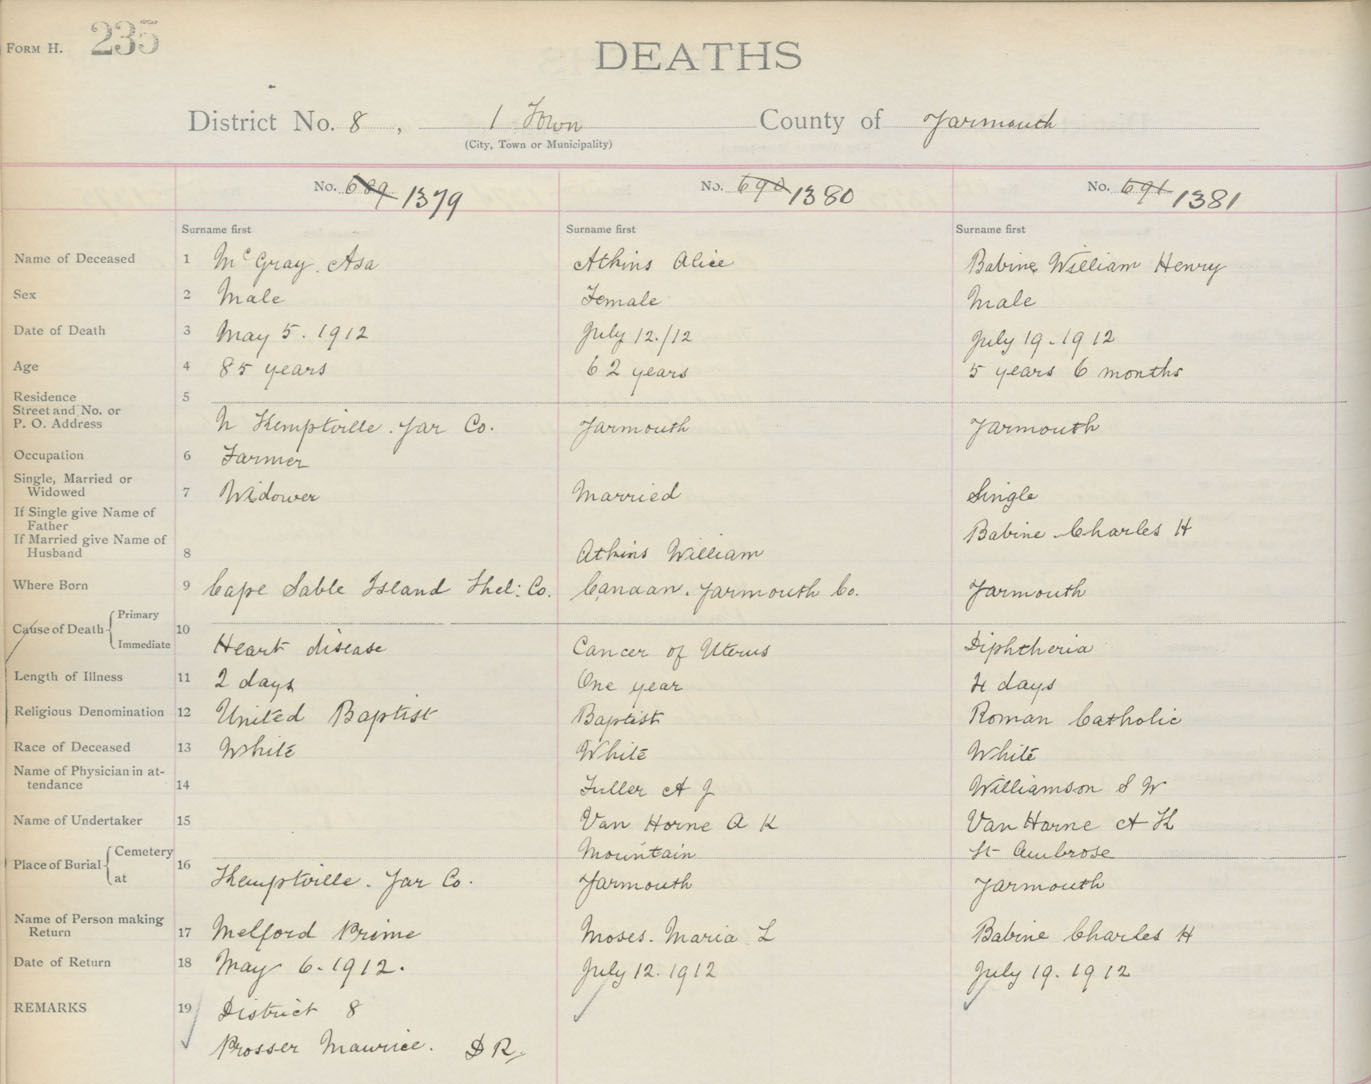 FORM H. 235
DEATHS
District No. 8, 1 Town County of Yarmouth
(City, Town or Municipality)
No. 689 1379 No. 690 1380 No. 691 1381
Surname first Surname first Surname first
Name of Deceased 1 McGray. Asa Atkins Alice Babine William Henry
Sex 2 Male Female Male
Date of Death 3 May 5. 1912 July 12./12 July 19-1912
Age 4 85 years 62 years 5 years 6 months
Residence 5
Street and No. or
P. O. Address N Kemptville. Yar Co. Yarmouth Yarmouth
Occupation 6 Farmer
Single, Married or
Widowed 7 Widower Married Single
If Single give Name of
Father Babine Charles H
If Married give Name of
Husband 8 Atkins William
Where Born 9 Cape Sable Island Shel: Co. Canaan. Yarmouth Co. Yarmouth
Cause of Death Primary
10
Immediate Heart disease Cancer of Uterus Diphtheria
Length of Illness 11 2 days One year 4 days
Religious Denomination 12 United Baptist Baptist Roman Catholic
Race of Deceased 13 White White White
Name of Physician in at-
tendance 14 Fuller A J Williamson S W
Name of Undertaker 15 Van Horne A K Van Horne A K
Place of Burial Cemetery 16 Mountain St Ambrose
at Kemptville. Yar Co. Yarmouth Yarmouth
Name of Person making
Return 17 Melford Prime Moses. Maria L Babine Charles H
Date of Return 18 May 6-1912. July 12. 1912 July 19. 1912
REMARKS 19 District 8
Prosser Maurice. D R.